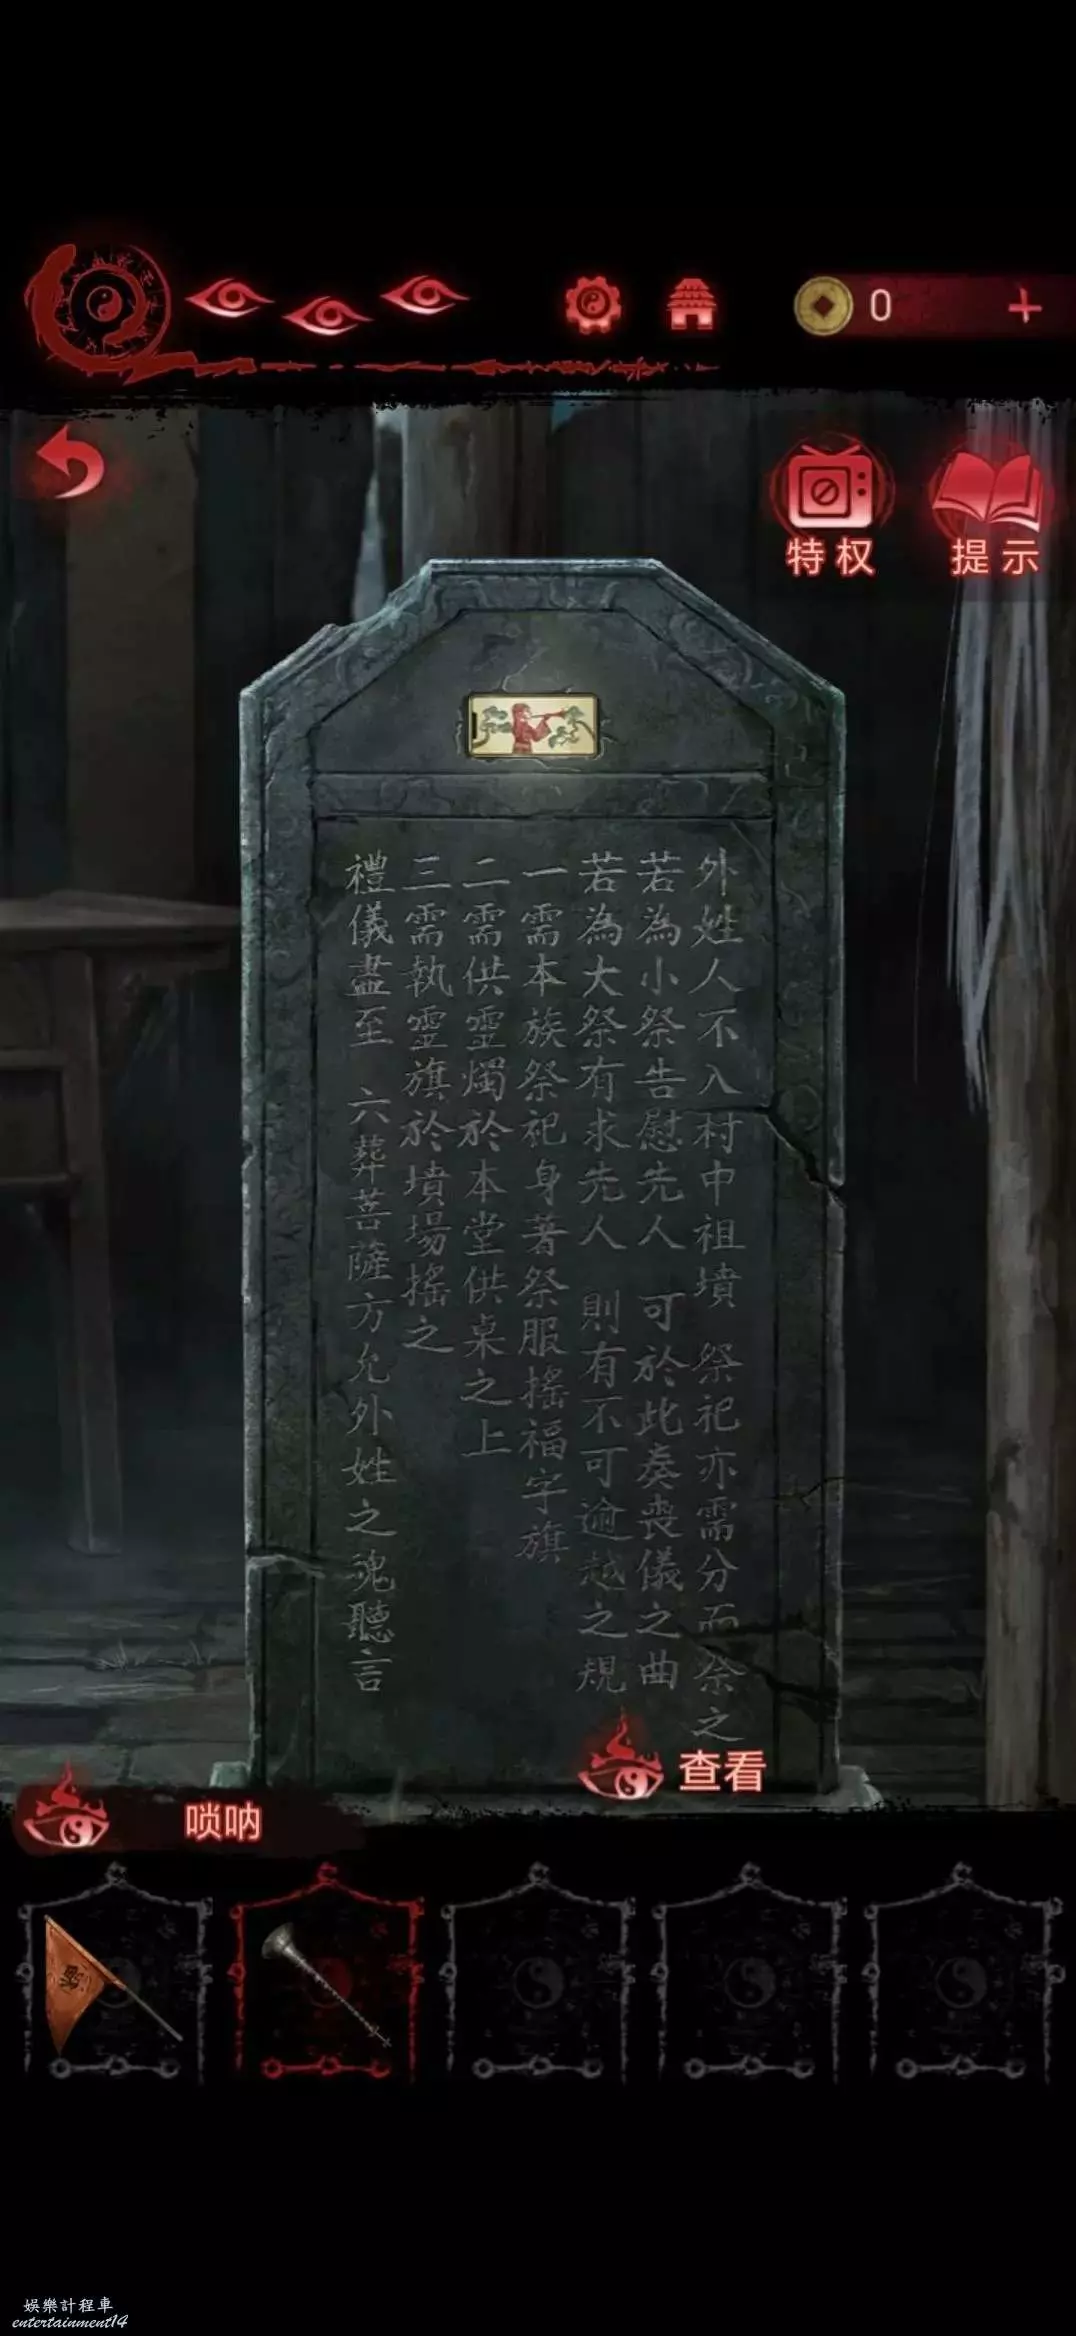 0
特权
提示
外姓人不入村中祖墳 祭祀亦需分而祭之
若為小祭告慰先人 可於此奏喪儀之曲
若為大祭有求先人 則有不可逾越之規
一需本族祭祀身著祭服搖福字旗
二需供靈燭於本堂供桌之上
三需執靈旗於墳場搖之
禮儀盡至 六葬菩薩方允外姓之魂聽言
查看
唢呐
娛樂計程車
entertainment14